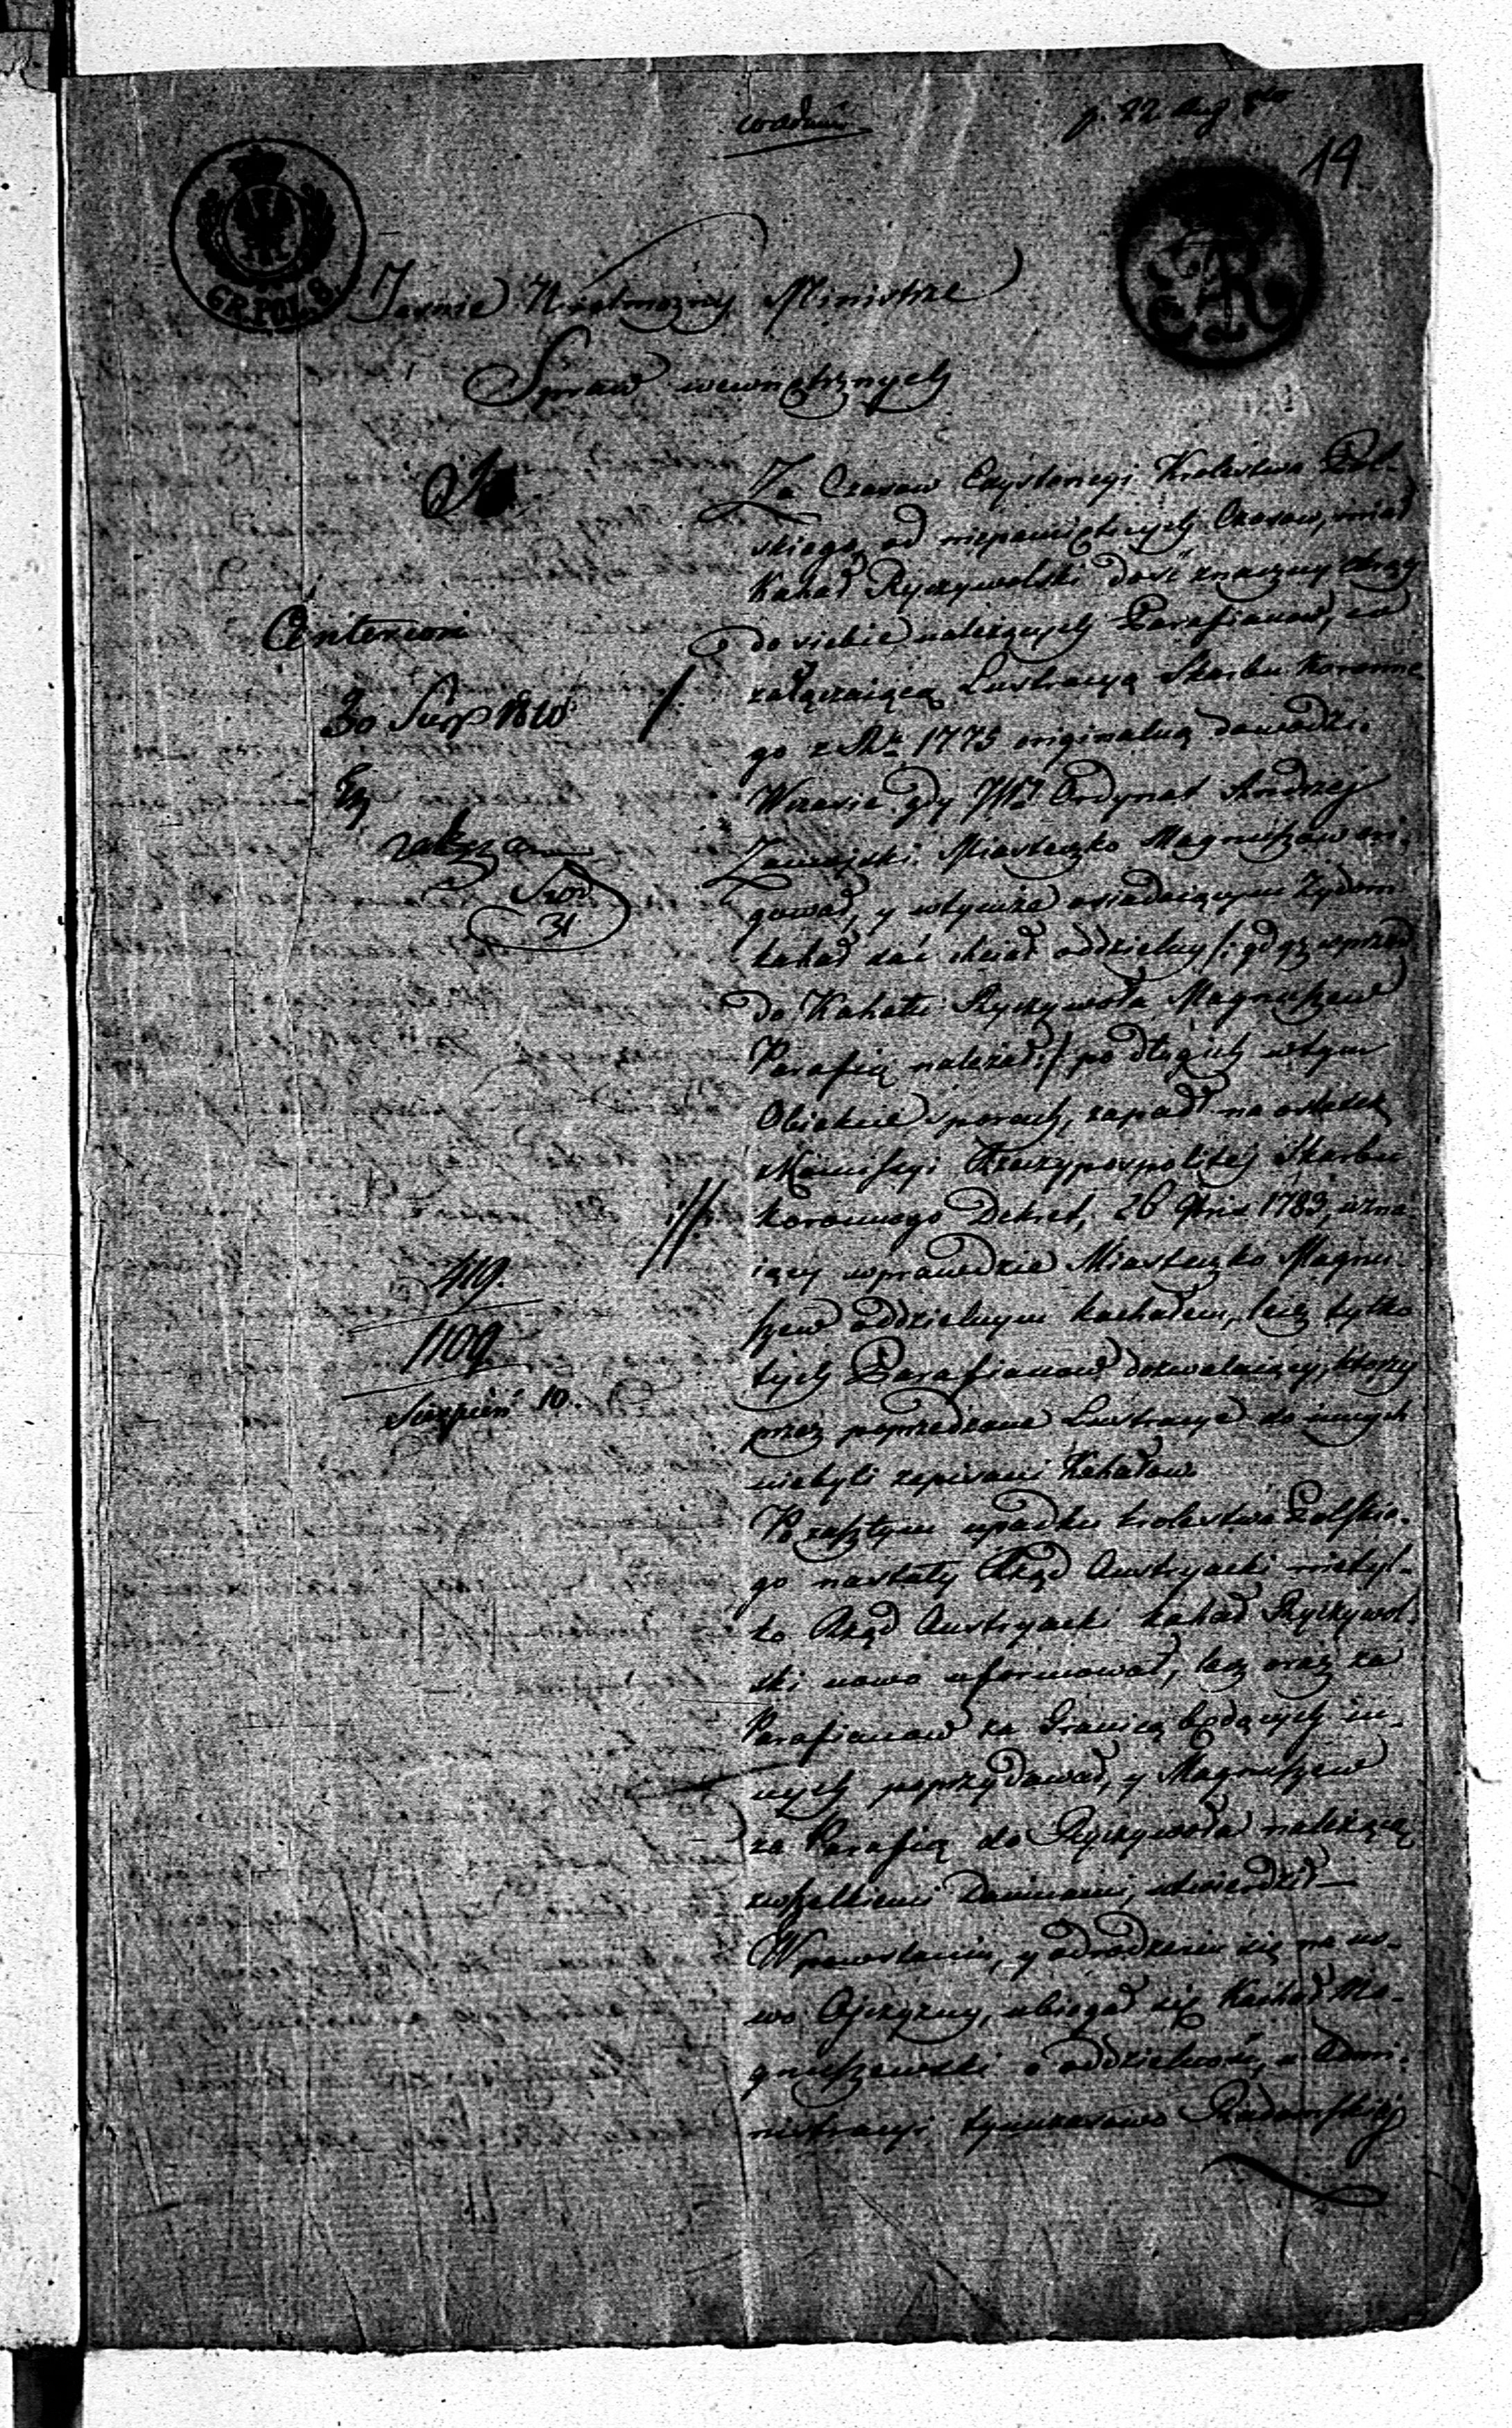 p. 22 Aug
14
GR. POL. 8.
Jasnie Wielmożny Ministrze
Spraw wewnętrznych
Za Czasow Exystencyi Krolestwa Pol-
skiego, od niepamiętnych Czasow, miał
Kahał Ryczywolski dość znaczny okrąg
do siebie należących Parafianow, co
załączaiąca Lustracya Skarbu Koronne-
go z Rku 1775 originalną dowodzi.
Wczasie gdy JW. Ordynat Andrzej
Zamojski Miasteczko Magnuszew eri-
gował, y wtymże osiadaiącym Żydom
kahał dać chciał oddzielny /: gdyż wprzód
do Kahału Ryczywoła Magnuszew
Parafią należał :/ po długich wtym
Obiekcie sporach, zapadł na ostatek
zKomissyi Rzeczypospolitej Skarbu
Koronnego Dekret, 26 1783, uzna-
iący wprawdzie Miasteczko Magnu-
szew oddzielnym kachałem, lecz tylko
tych Parafianow dozwalaiący, ktorzy
przez poprzednie Lustracye do innych
niebyli zapisani Kahałow
Po zaszłym upadku krolestwa Polskie-
go nastały Rząd Austryacki nietyl-
ko Rząd Austryacki kahał Ryczywol-
ski nowo uformował, lecz oraz za
Parafianow za Granicą będących in-
nych poprzydawał, y Magnuszew
za Parafią do Ryczywoła należącą
zwszelkiemi Daninami, utwierdził —
W powstaniu, y odrodzeniu się na no-
wo Ojczyzny, ubiegał się Kachał Ma-
gnuszewski o oddzielność, u Admi-
nistracyi tymczasowo Radomskiej
Anteriori
30 Sierp 1810
31
419.
1109
Sierpień 10.